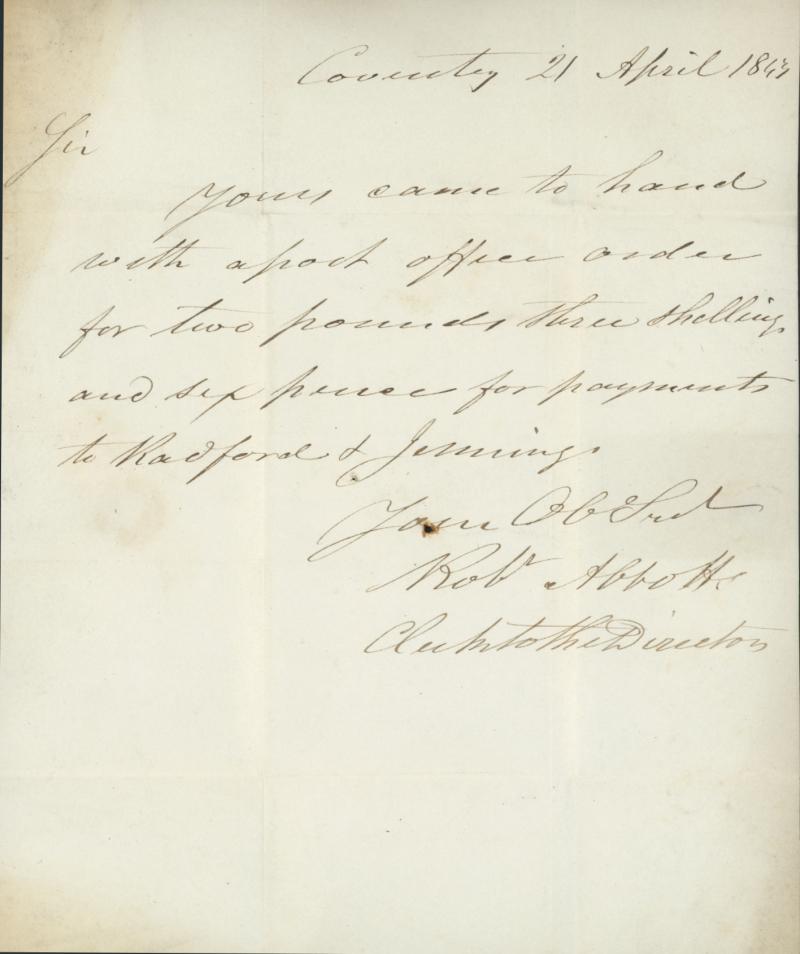 Coventry 21 April
Sir
Yours came to hand
with a post office order
for two pounds three shillings
and six pence for payments
to Radford & Jennings
Your Ob Svt
Robt Abbott
Clerk to the Directors